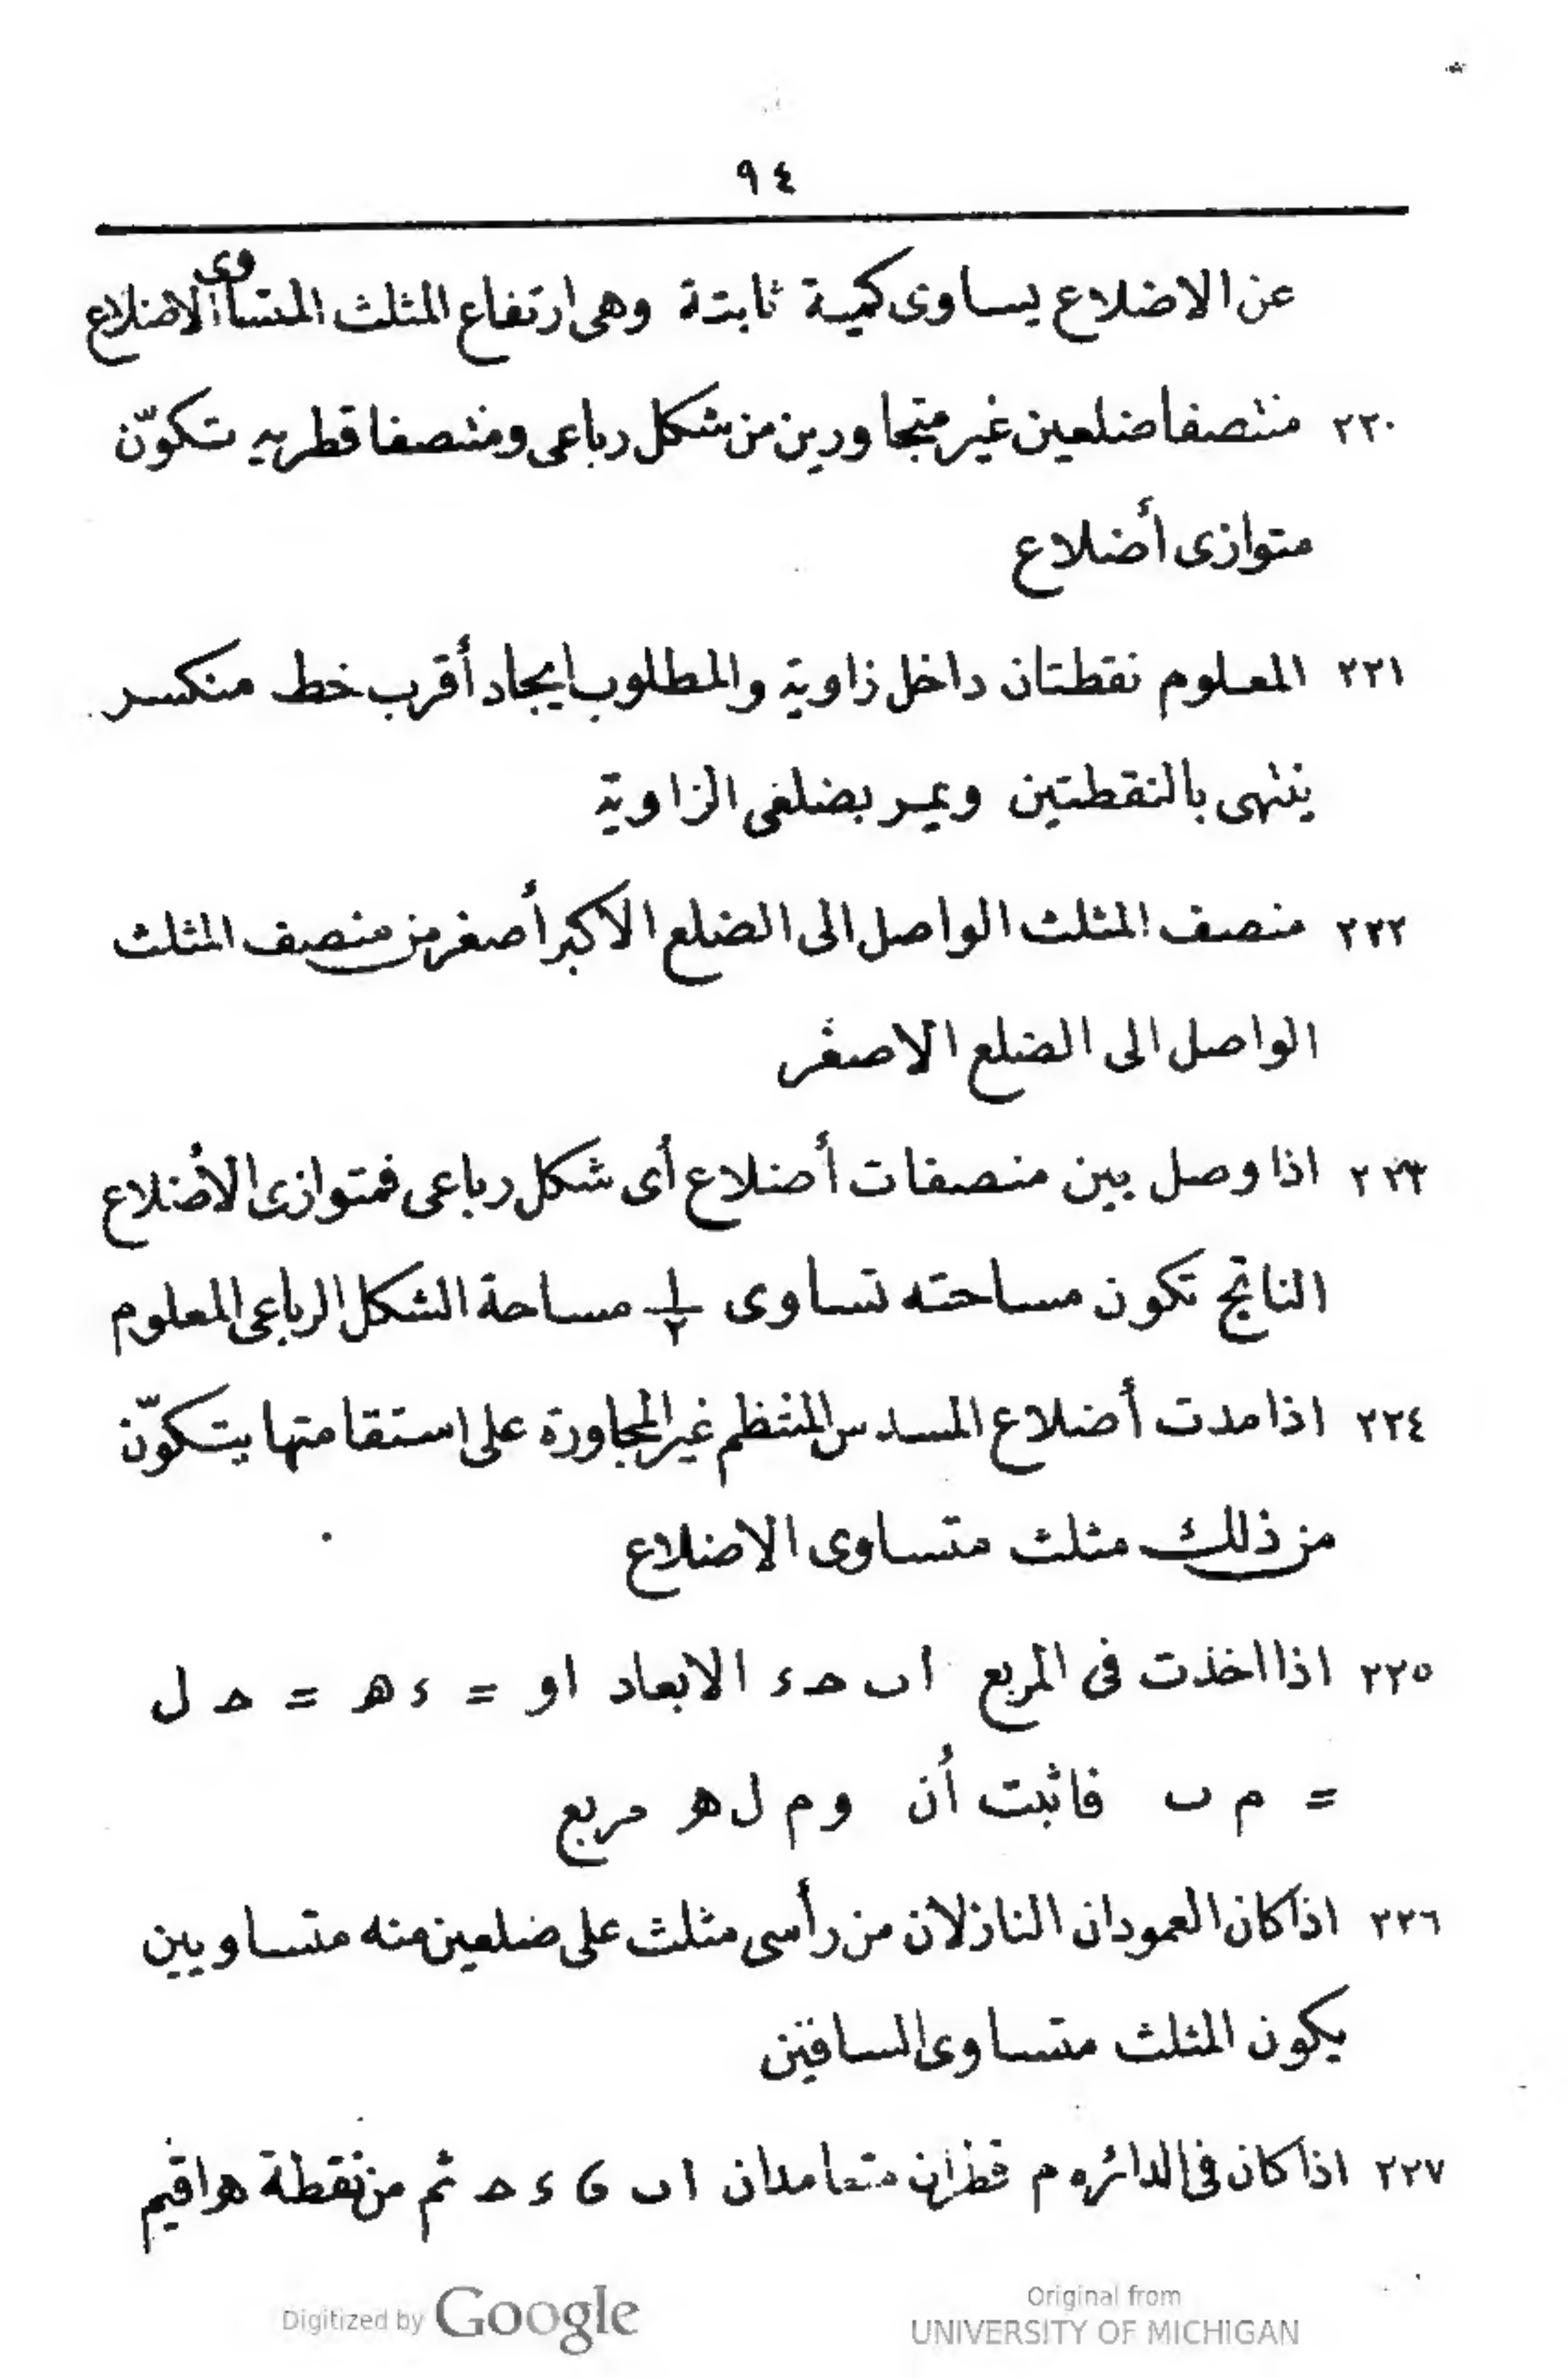 ٩٤
عن الاضلاع يساوى كمية ثابتة وهى ارتفاع المثلث المتساوى الاضلاع
٢٢٠ منتصفا ضلعين غير متجاورين من شكل رباعى ومنتصفا قطريه تكوّن
متوازى أضلاع
٢٢١ المعلوم نقطتان داخل زاوية والمطلوب ايجاد أقرب خط منكسر
ينتهى بالنقطتين ويمر بضلعى الزاوية
٢٢٢ منصف المثلث الواصل الى الضلع الاكبر أصغر من منصف المثلث
الواصل الى الضلع الاصغر
٢٢٣ اذا وصل بين منصفات أضلاع أى شكل رباعى فمتوازى الأضلاع
الناتج تكون مساحته تساوى ١/٢ مساحة الشكل الرباعى المعلوم
٢٢٤ اذا مدت أضلاع المسدس المنتظم غير المجاورة على استقامتها يتكوّن
من ذلك مثلث متساوى الاضلاع
٢٢٥ اذا اخذت فى المربع ا ب حـ ء الابعاد او = ء هـ = حـ ل
= م ب فاثبت أن و م ل هـ مربع
٢٢٦ اذا كان العمودان النازلان من رأسى مثلث على ضلعين منه متساويين
يكون المثلث متساوى الساقين
٢٢٧ اذا كان فى الدائره م قطران متعامدان ا ب ى ء حـ ثم من نقطة هـ اقيم
Digitized by Google
Original from
UNIVERSITY OF MICHIGAN